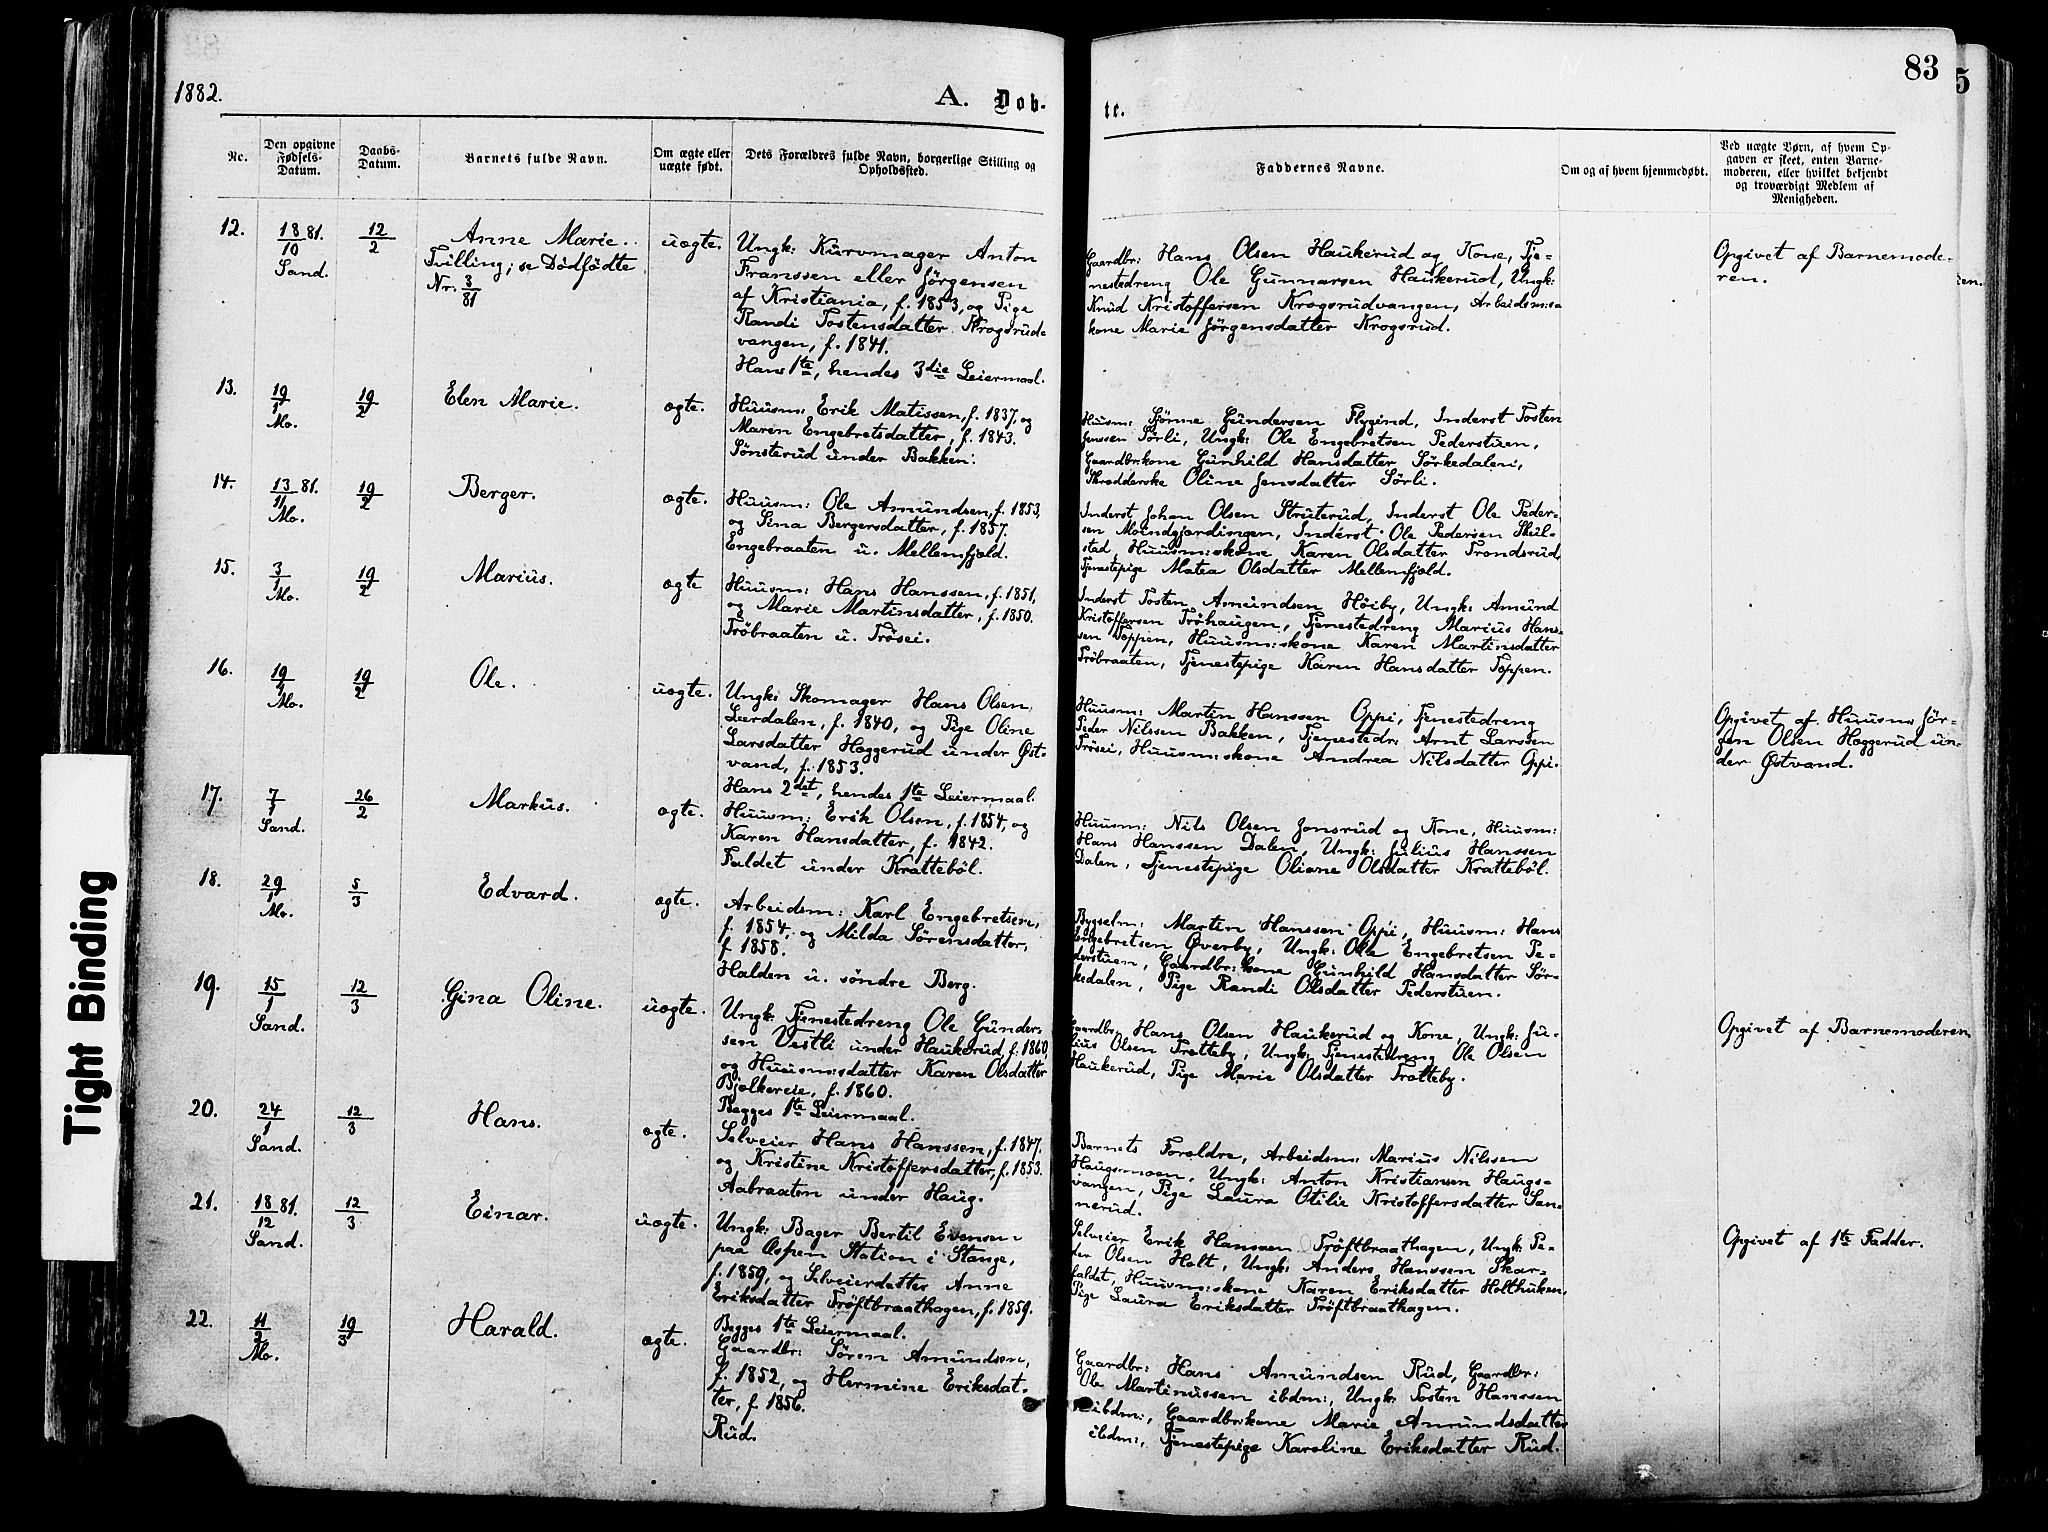 83
5
1882.
A. Døb-
te.
No.
Den opgivne
Fødsels-
Datum.
Daabs-
Datum.
Barnets fulde Navn.
Om ægte eller
uægte født.
Dets Forældres fulde Navn, borgerlige Stilling og
Opholdssted.
Faddernes Navne.
Om og af hvem hjemmedøbt.
Ved uægte Børn, af hvem Op-
gaven er skeet, enten Barne-
moderen, eller hvilket bekjendt
og troværdigt Medlem af
Menigheden.
12.
18/10 81.
Sand.
12/2
Anne Marie.
Tvilling; se Dödfödte
Nr. 3/81
uægte.
Ungk: Kurvmager Anton
Franssen eller Jörgensen
af Kristiania, f. 1853, og Pige
Randi Tostensdatter Krogsrud-
vangen, f. 1841.
Hans 1te, hendes 3die Leiermaal.
Gaardbr: Hans Olsen Haukerud og Kone, Tje-
nestedreng Ole Gunnarsen Haukerud, Ungk:
Knud Kristoffersen Krogsrudvangen, Arbeidsm:s-
kone Marie Jörgensdatter Krogsrud.
Opgivet af Barnemode-
ren.
ien.
13.
19/1
Mo.
19/2
Elen Marie.
ægte.
Huusm: Erik Matissen, f. 1837, og
Maren Engebretsdatter, f. 1843.
Sönsterud under Bakken.
Huusm: Sjönne Gundersen Flygind, Inderst Tosten
Jenssen Sörli, Ungk: Ole Engebretsen Pederstuen,
Gaardbr:kone Gunhild Hansdatter Sörkedalen,
Skrædderske Oline Jensdatter Sörli.
14.
13/11 81.
Mo.
19/2
Berger.
ægte.
Huusm: Ole Amundsen, f. 1853,
og Sina Bergersdatter, f. 1857.
Engebraaten u. Mellemfjeld.
Inderst Johan Olsen Struterud, Inderst Ole Peder-
sen Moindgjærdingen, Inderst Ole Pedersen Skul-
stad, Huusm:skone Karen Olsdatter Trondsrud,
Tjenestepige Matea Olsdatter Mellemfjeld.
15.
3/1
Mo.
19/2
Marius.
ægte
Huusm: Hans Hanssen, f. 1851,
og Marie Martinsdatter, f. 1850.
Tröbraaten u. Trösei.
Inderst Tosten Amundsen Höiby, Ungk: Amund
Kristoffersen Tröhaugen, Tjenestedreng Marius Hans-
sen Toppen, Huusm:skone Karen Martinsdatter
Tröbraaten, Tjenestepige Karen Hansdatter Toppen.
16.
19/1
Mo.
19/2
Ole.
uægte.
Ungk: Skomager Hans Olsen
Lærdalen, f. 1840, og Pige Oline
Larsdatter Hæggerud under Øst-
vand, f. 1853.
Hans 2det, hendes 1te Leiermaal.
Huusm: Martin Hanssen Oppi, Tjenestedreng
Peder Nilssen Bakken, Tjenestedr: Arnt Larssen
Trösei, Huusm:skone Andrea Nilsdatter Oppi.
Opgivet af Huusm: Jör-
gen Olsen Hæggerud un-
der Østvand.
17.
7/1
Sand.
26/2
Markus.
ægte.
Huusm: Erik Olsen, f. 1854, og
Karen Hansdatter, f. 1842.
Faldet under Kratteböl.
Huusm: Nils Olsen Jonsrud og Kone, Huusm:
Hans Hanssen Dalen, Ungk: Julius Hanssen
Dalen, Tjenestepige Oliane Olsdatter Kratteböl.
18.
29/1
Mo.
5/3
Edvard.
ægte.
Arbeidsm: Karl Engebretsen,
f. 1854, og Milda Sörensdatter,
f. 1858.
Halden u. söndre Berg.
Bygselm: Martin Hanssen Oppi, Huusm: Hans
Engebretsen Øverby, Ungk: Ole Engebretsen Pe-
derstuen, Gaardbr:kone Gunhild Hansdatter Sör-
kedalen, Pige Randi Olsdatter Pederstuen.
19.
15/1
Sand.
12/3
Gina Oline.
uægte.
Ungk: Tjenestedreng Ole Gunder-
sen Vestli under Haukerud, f. 1860,
og Huusm:sdatter Karen Olsdatter
Bjelkereie, f. 1860.
Begges 1te Leiermaal.
Gaardbr: Hans Olsen Haukerud og Kone, Ungk: Ju-
lius Olsen Trætteby, Ungk: Tjenestedreng Ole Olsen
Haukerud, Pige Marie Olsdatter Trætteby.
Opgivet af Barnemoderen
20.
24/1
Sand.
12/3
Hans.
ægte.
Selveier Hans Hanssen, f. 1847,
og Kristine Kristoffersdatter, f. 1853.
Aabraaten under Haug.
Barnets Forældre, Arbeidsm: Marius Nilssen
Haugsmoen, Ungk: Anton Kristiansen Haugs-
vangen, Pige Laura Otilie Kristoffersdatter San-
nerud.
21.
18/12 81.
Sand.
12/3
Einar.
uægte.
Ungk: Bager Bertil Evensen
paa Æspen Station i Stange,
f. 1859, og Selveierdatter Anne
Eriksdatter Tröftbraathagen, f. 1859.
Begges 1te Leiermaal.
Selveier Erik Hanssen Tröftbraathagen, Ungk: Pe-
der Olsen Holt, Ungk: Anders Hanssen Skar-
faldet, Huusm:skone Karen Eriksdatter Holthuken,
Pige Laura Eriksdatter Tröftbraathagen.
Opgivet af 1te Fadder.
22.
11/2
Mo.
19/3
Harald.
ægte.
Gaardbr: Sören Amundsen,
f. 1852, og Hermine Eriksdat-
ter, f. 1856.
Rud.
Gaardbr: Hans Amundsen Rud, Gaardbr:
Ole Martinussen ibdm:, Ungk: Tosten Hanssen
ibdm:, Gaardbr:kone Marie Amundsdatter
ibdm:, Tjenestepige Karoline Eriksdatter Rud.
Tight Binding